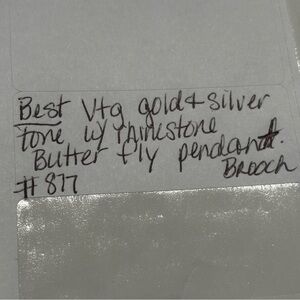 Best Vtg gold + silver
tone w/ rhinestone
Butterfly pendant.
Brooch
#877